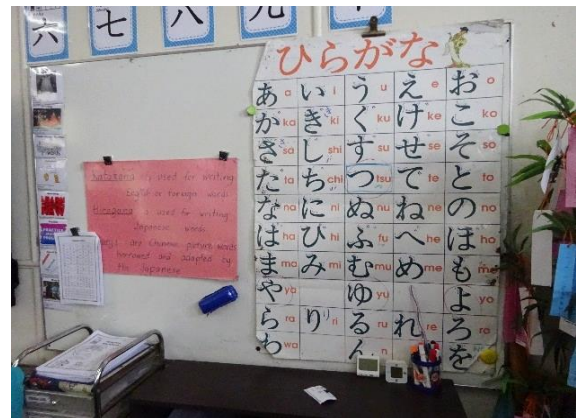 六 七 八 九 十
ひらがな
あ a い i う u え e お o
か ka き ki く ku け ke こ ko
さ sa し shi す su せ se そ so
た ta ち chi つ tsu て te と to
な na に ni ぬ nu ね ne の no
は ha ひ hi ふ fu へ he ほ ho
ま ma み mi む mu め me も mo
や ya ゆ yu よ yo
ら ra り ri る ru れ re ろ ro
わ wa ん n を
Katakana is used for writing
English or foreign words
Hiragana is used for writing
Japanese words
are Chinese picture words
borrowed and adapted by
the Japanese